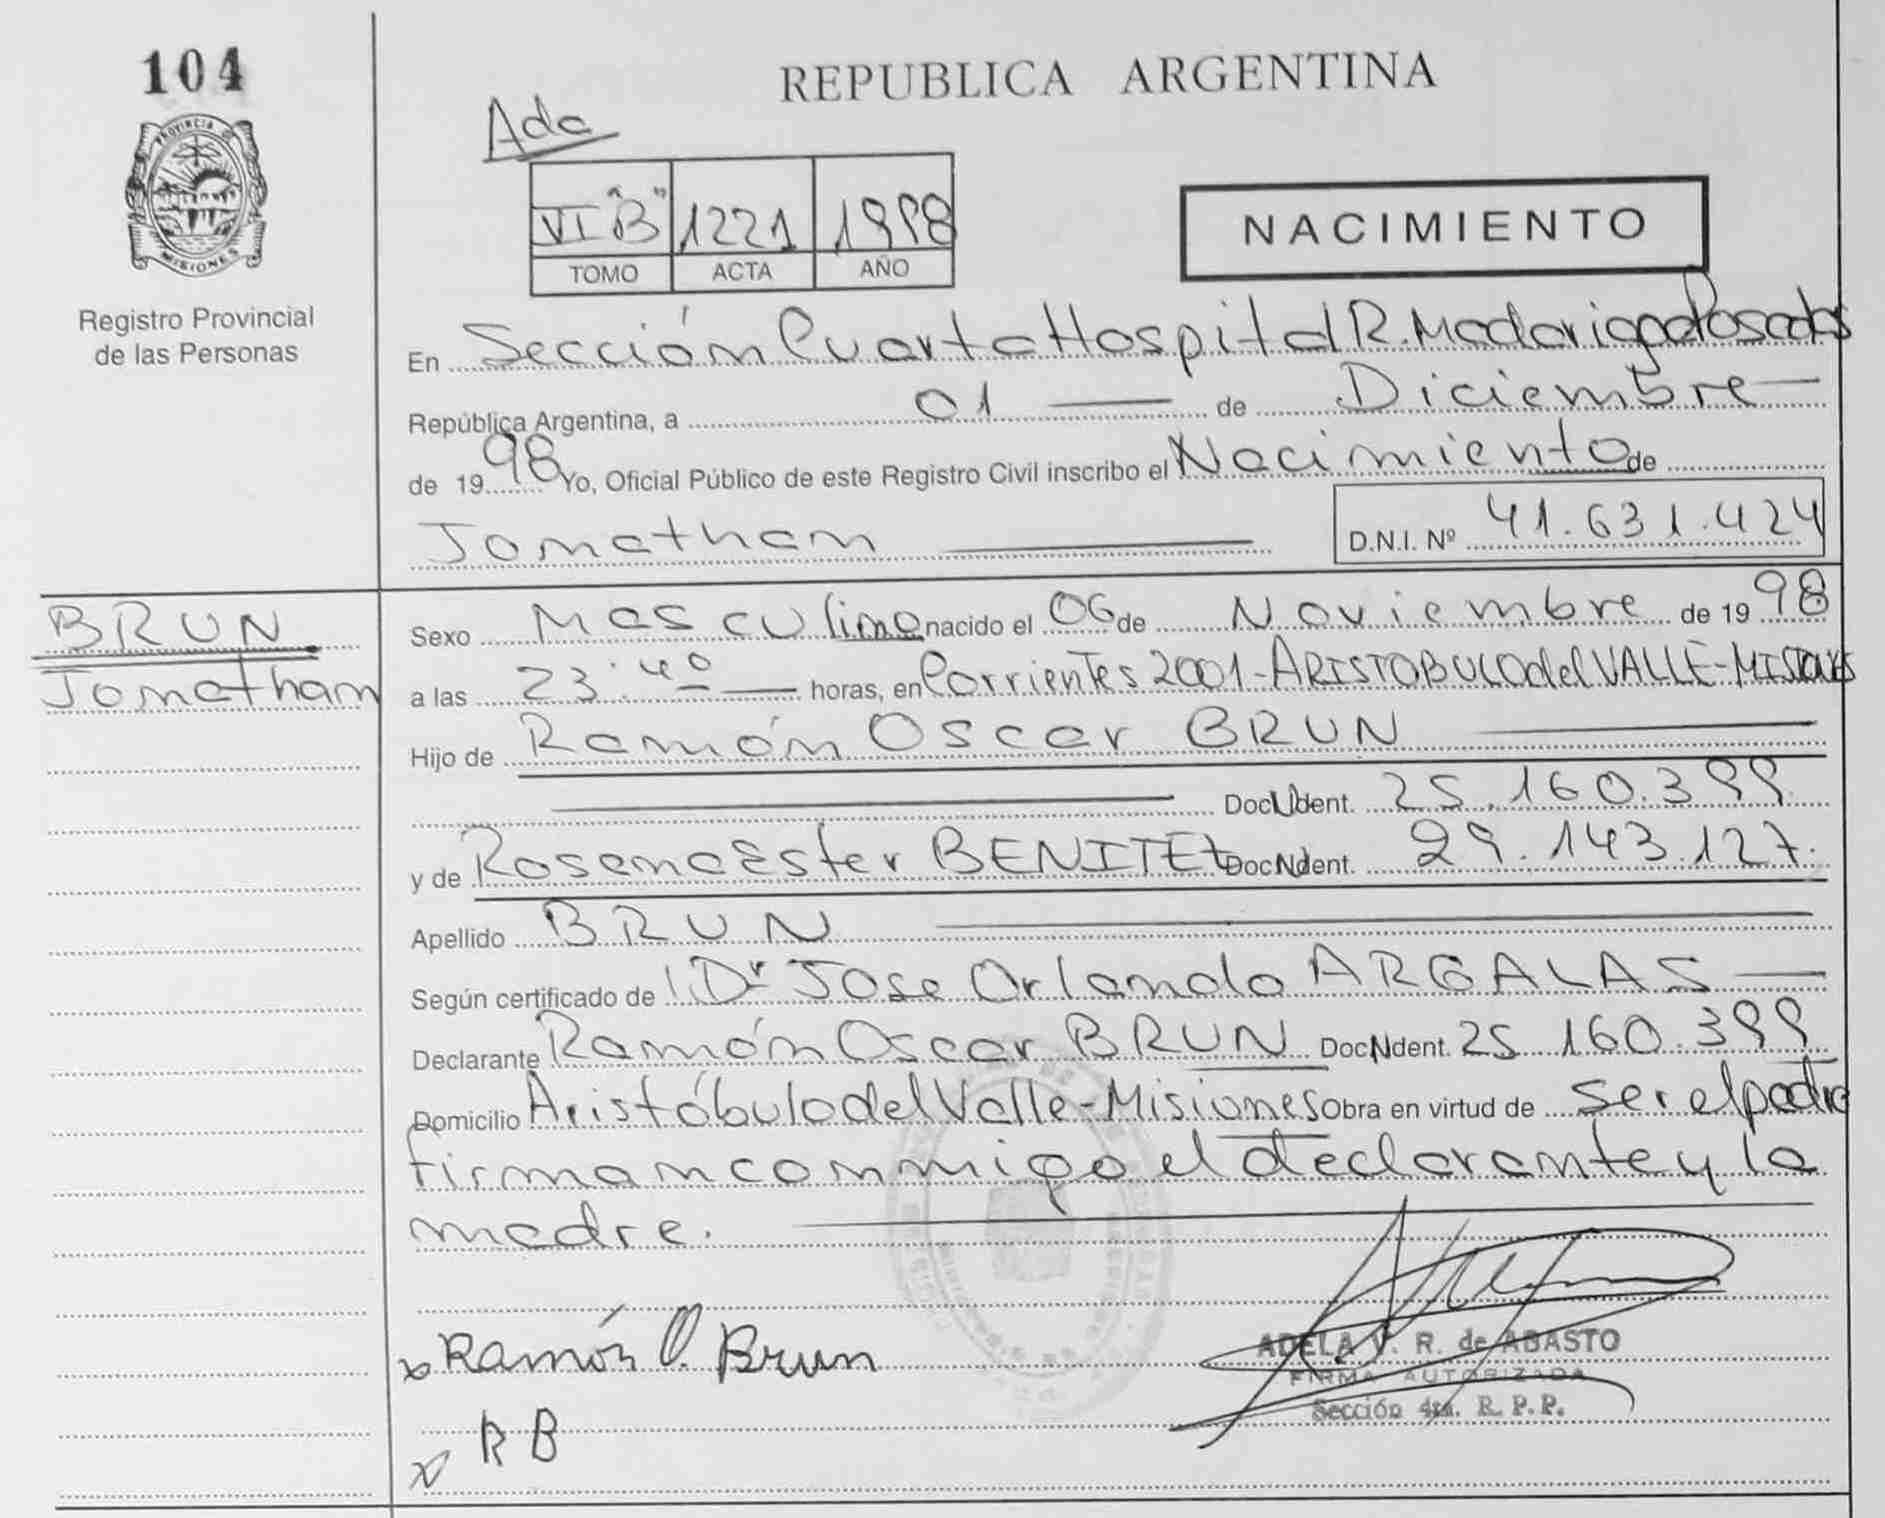 104
REPUBLICA ARGENTINA
PROVINCIA
MISIONES
Registro Provincial
de las Personas
Ada
VI "B" 1221 1998
TOMO ACTA AÑO
NACIMIENTO
En Sección Cuarta Hospital R. Madariaga Posadas
República Argentina, a 01 de Diciembre
de 1998 Yo, Oficial Público de este Registro Civil inscribo el Nacimiento de
Jonathan D.N.I. Nº 41.631.424
BRUN
Jonathan
Sexo Masculino nacido el 06 de Noviembre de 1998
a las 23:40 horas, en Corrientes 2001-ARISTOBULO del VALLE-MISIONES
Hijo de Ramón Oscar BRUN
Doc. Ident. 25.160.399
y de Rosana Ester BENITEZ Doc. Ident. 29.143.127.
Apellido BRUN
Según certificado de Dr Jose Orlando ARGALAS
Declarante Ramón Oscar BRUN Doc. Ident. 25.160.399
Domicilio Aristóbulo del Valle-Misiones Obra en virtud de ser el padre
firman conmigo el declarante y la
madre.
x Ramón O. Brun
ADELA V. R. de ABASTO
FIRMA AUTORIZADA
Sección 4ta. R. P. P.
x R B